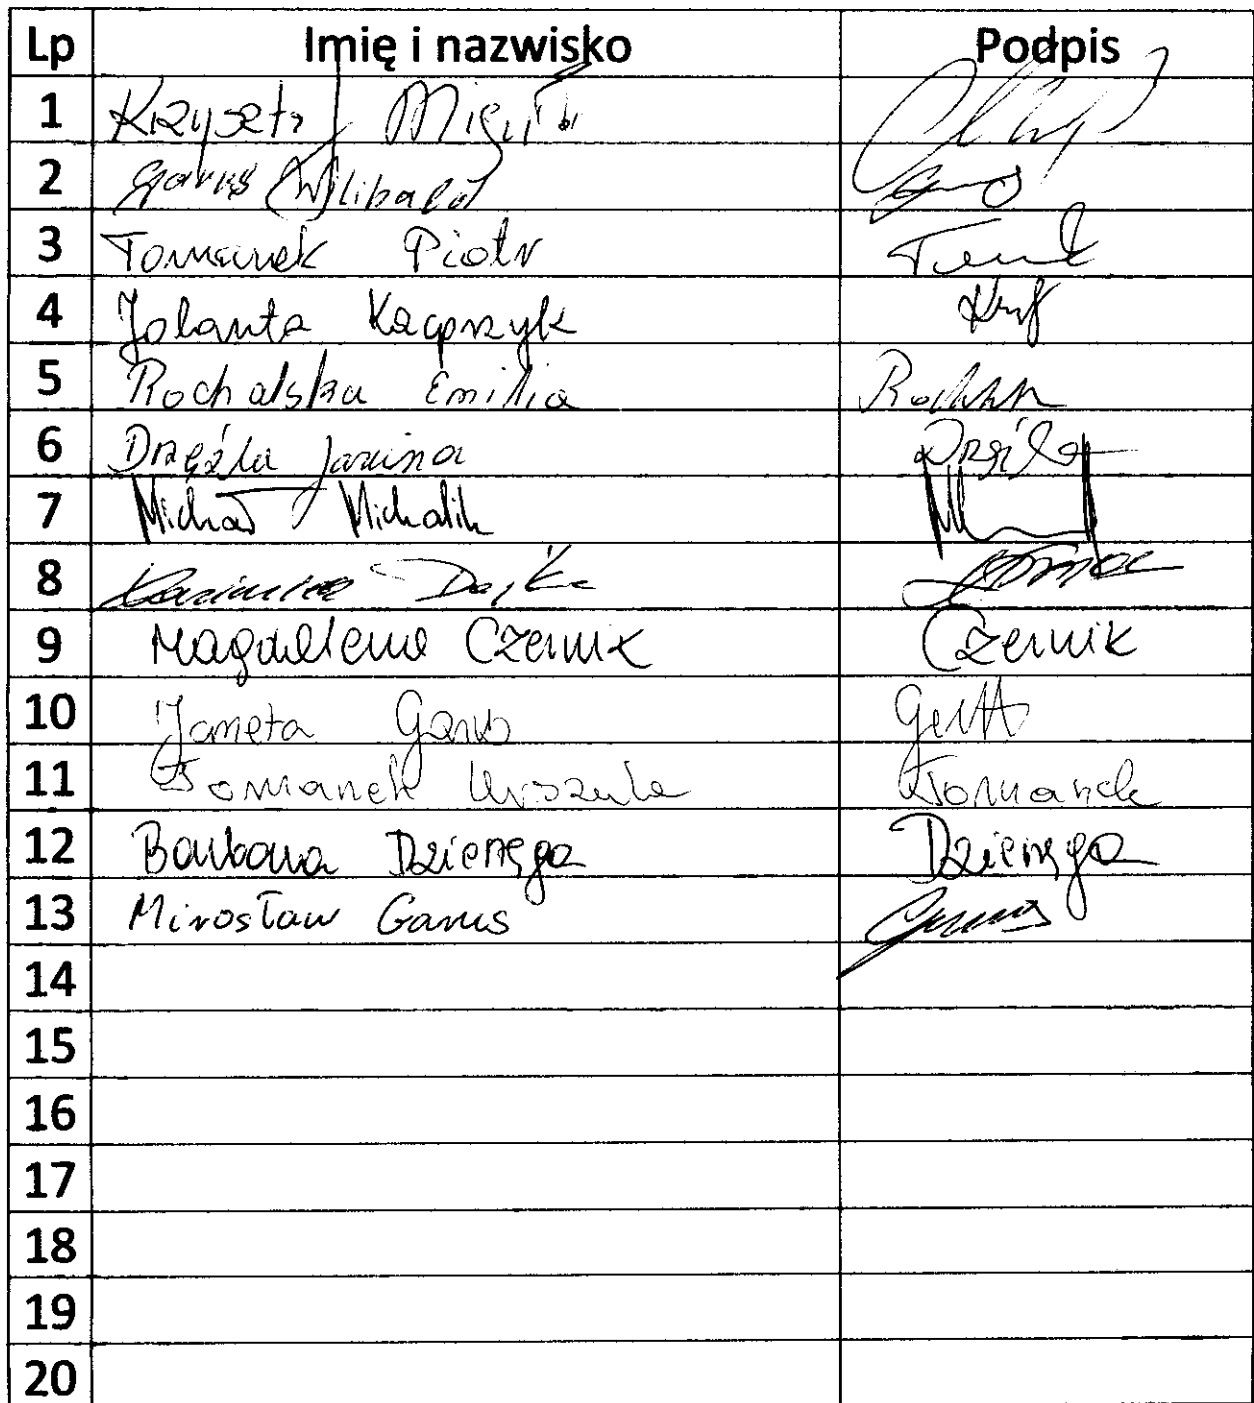 Lp Imię i nazwisko Podpis
1 Krzysztof
2 Garus Wilibald
3 Tomanek Piotr
4 Jolanta Kacprzyk
5 Rochalska Emilia
6 Drężla Janina Drężla
7 Michał Michalik
8 Kazimierz
9 Magdalena Czernik Czernik
10 Janeta Garus
11 Tomanek Urszula Tomanek
12 Barbara Dzienęga Dzienęga
13 Mirosław Garus Garus
14
15
16
17
18
19
20